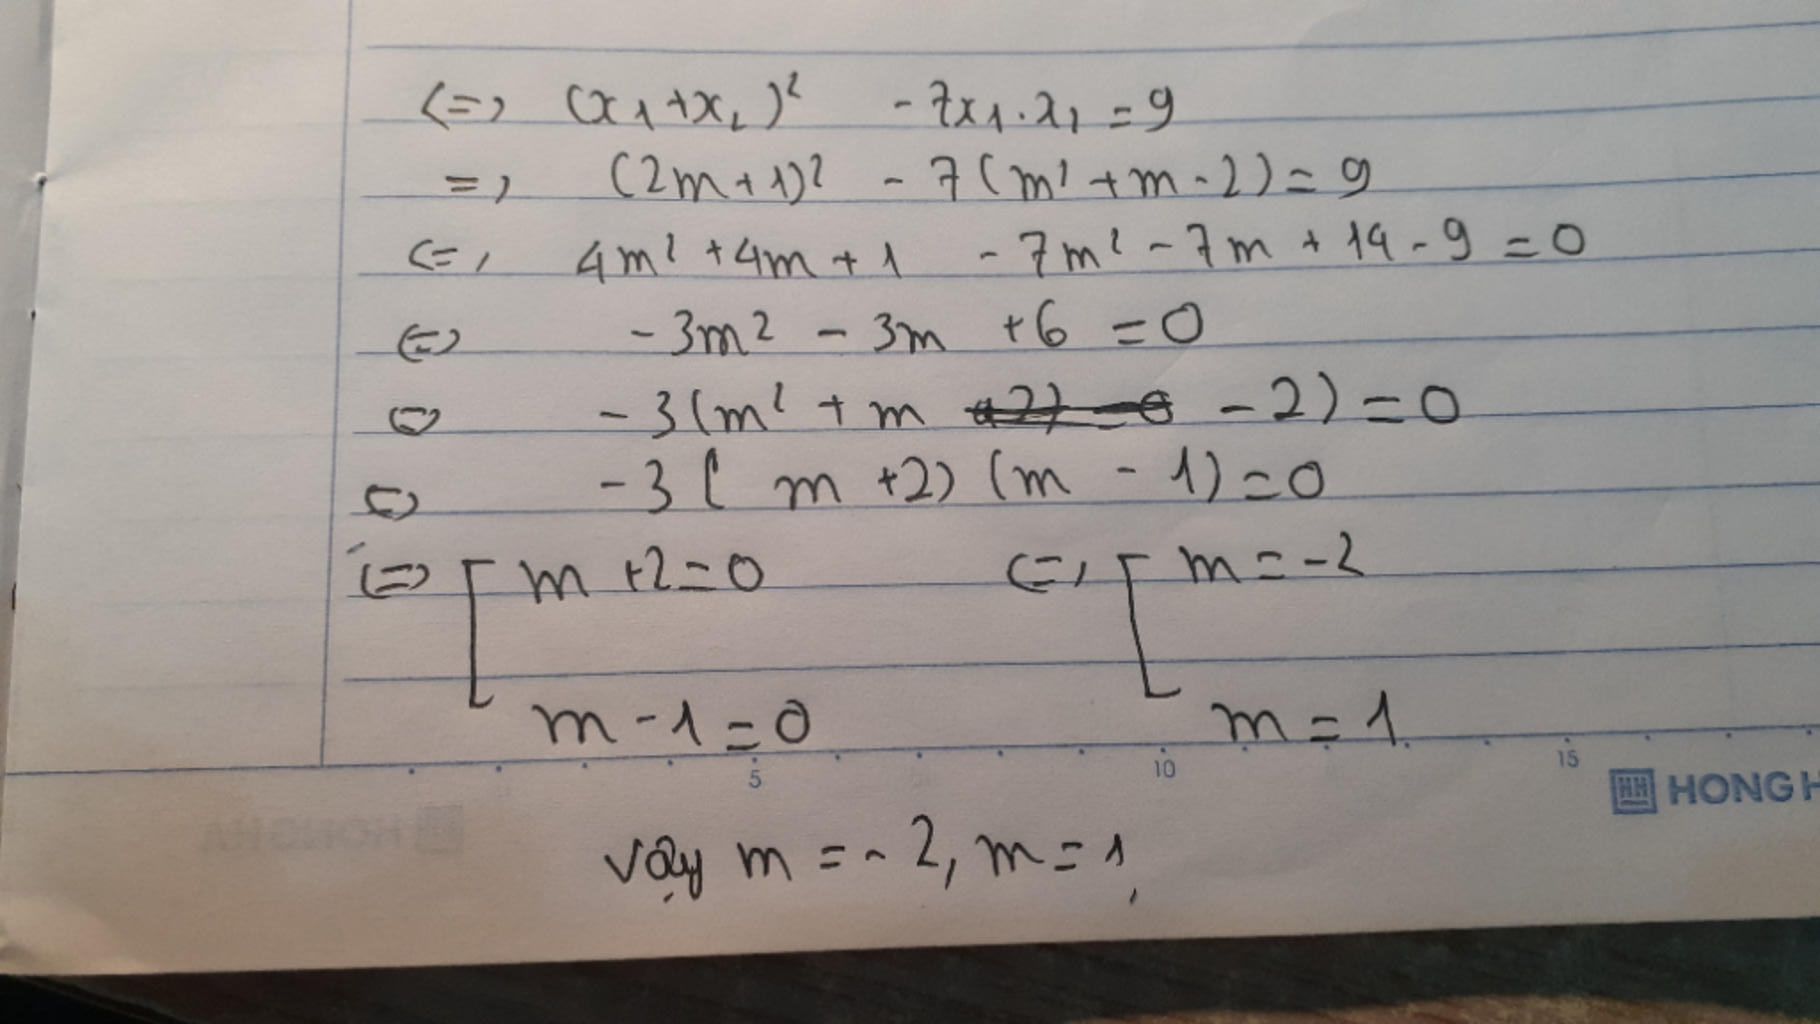 <=> (x₁+x₂)² - 7x₁.x₁ = 9
=> (2m+1)² - 7(m²+m-2) = 9
<=> 4m² + 4m + 1 - 7m² - 7m + 14 - 9 = 0
<=> -3m² - 3m + 6 = 0
<=> -3(m² + m - 2) = 0
<=> -3(m+2)(m-1) = 0
<=> [ m+2=0 <=> [ m=-2
m-1=0 m=1
5 10 15
HONG H
vậy m = -2, m = 1,